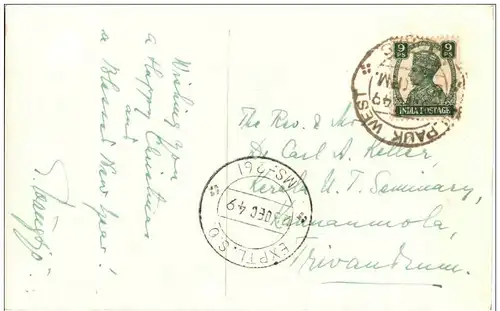 Wishing you
a Happy Christmas
and
a Blessed New Year!
9 PS 9 PS
INDIA POSTAGE
PAUK WEST
49
The Rev. & Mrs
Dr Carl A. Keller,
Kerala U. T. Seminary,
Kannanmola,
Trivandrum.
EXPTL. S.O.
DEC 49